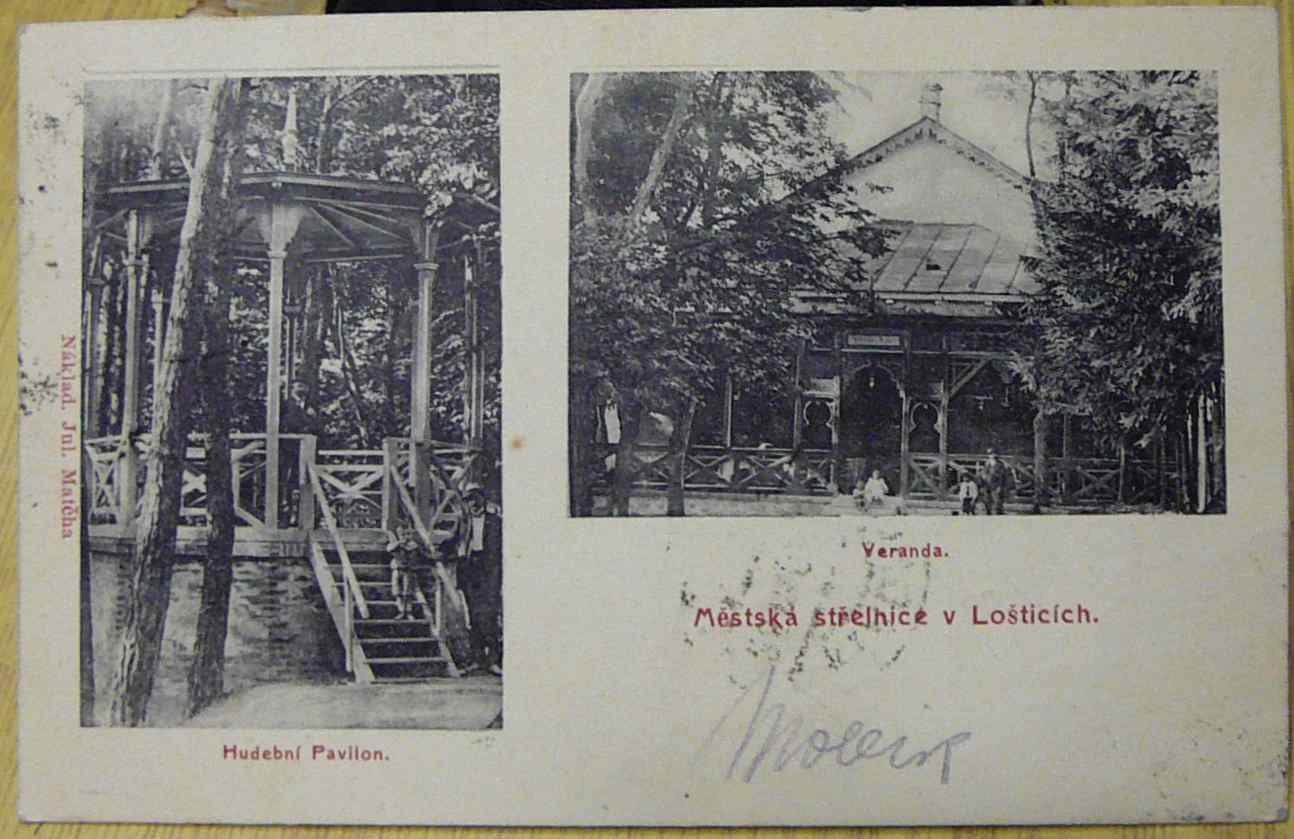 Náklad. Jul. Matěha
Hudební Pavilon.
Veranda.
Městská střelnice v Lošticích.